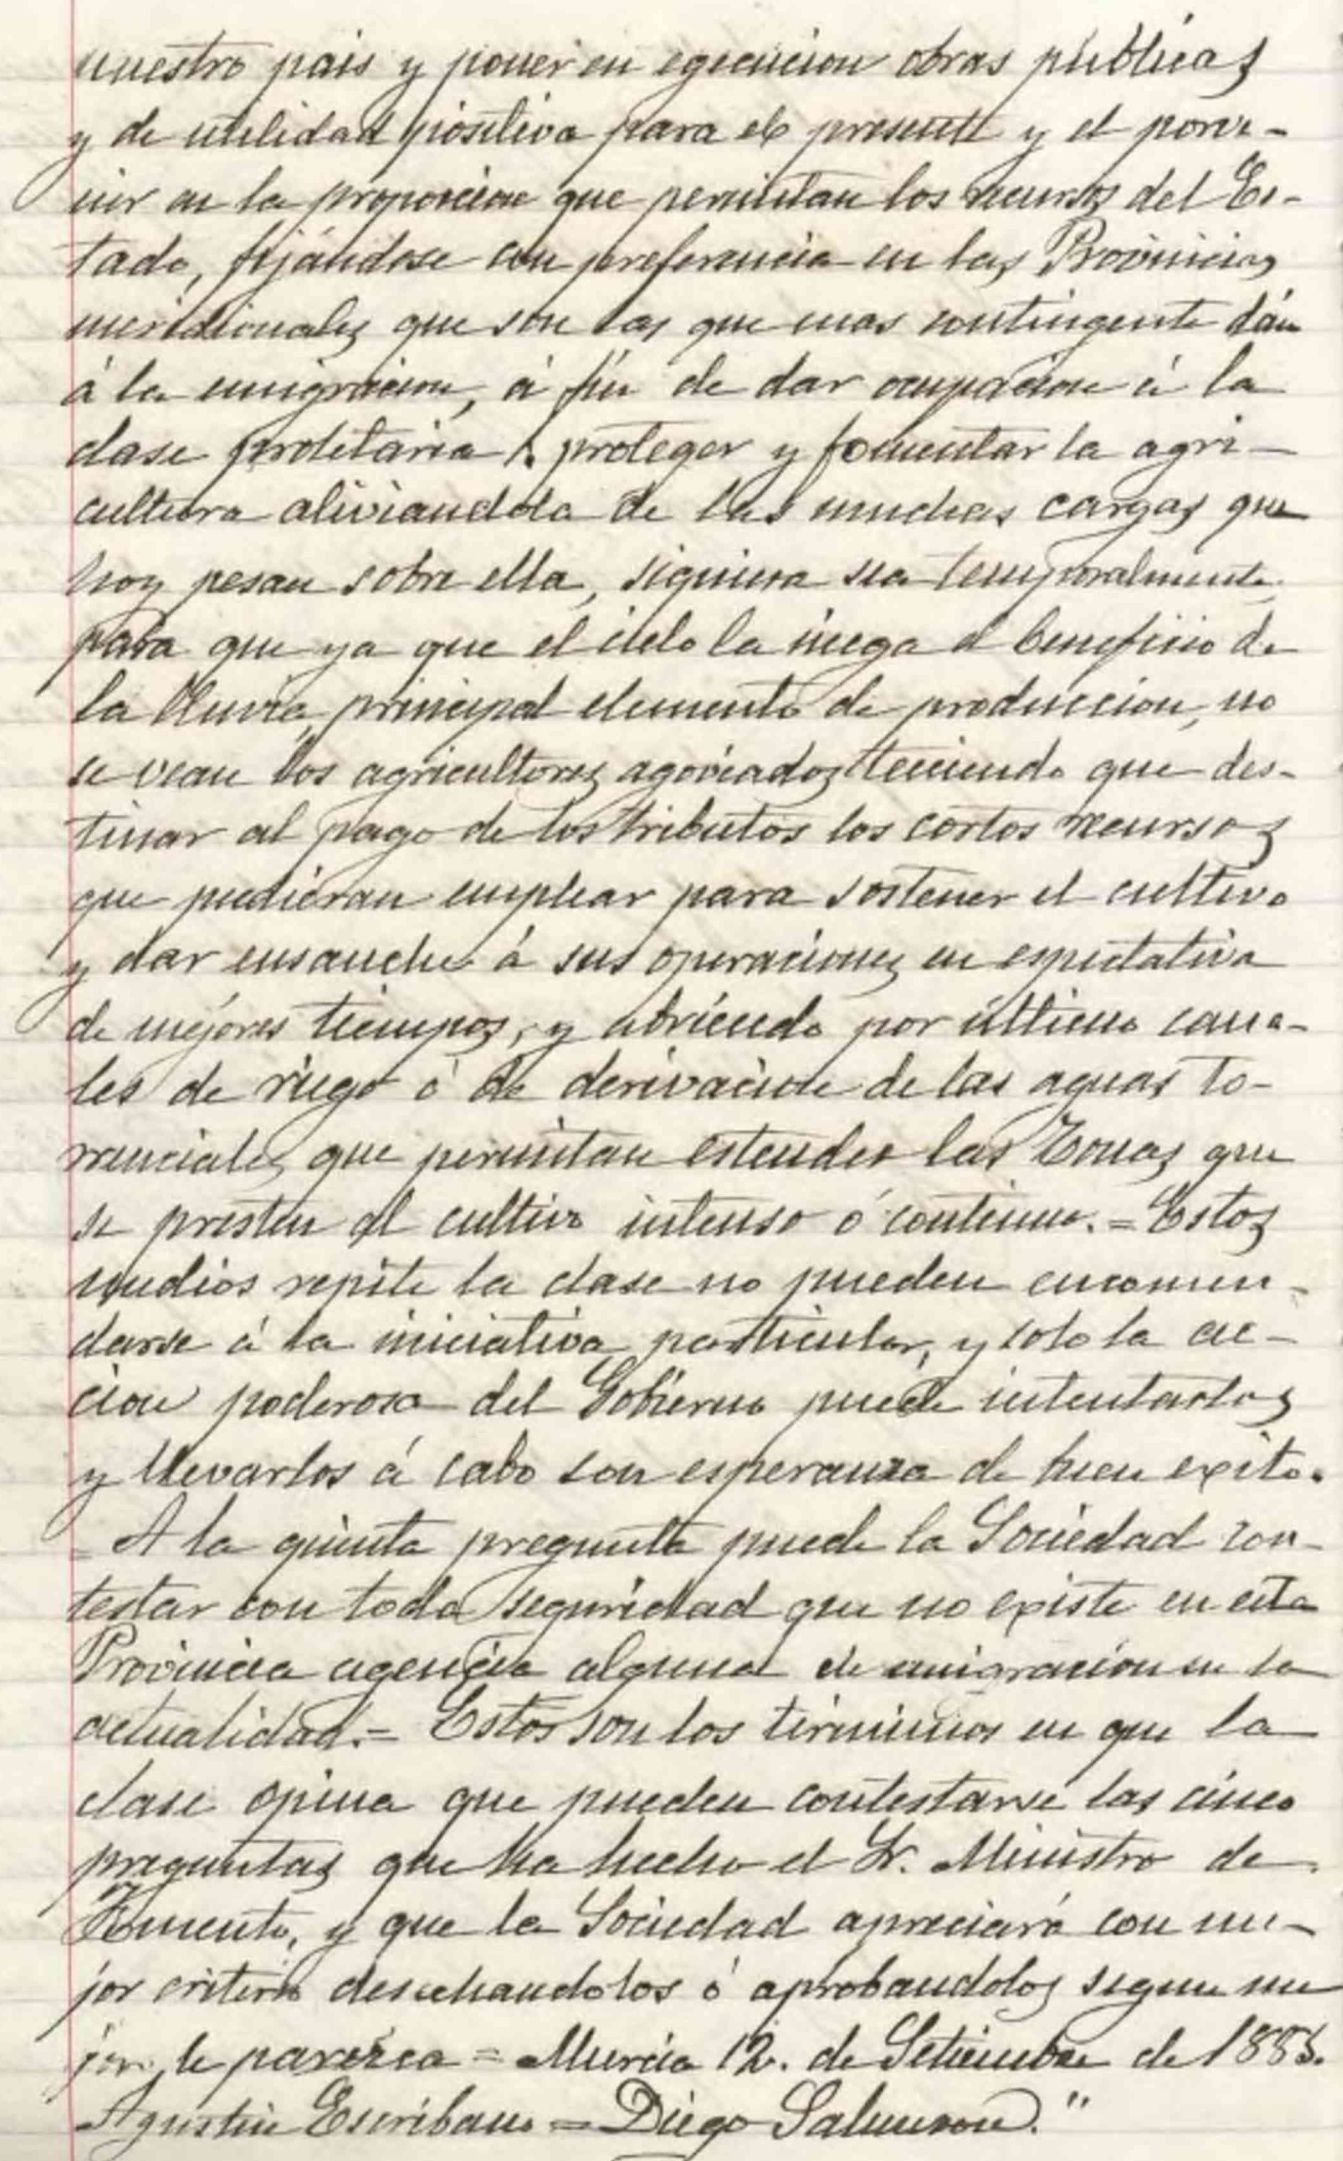 nuestro pais y poner en egecucion obras públicas
y de utilidad positiva para el presente y el porve-
nir en la proporcion que permitan los recursos del Es-
tado, fijándose con preferencia en las Provincias
meridionales que son las que mas contingente dán
á la emigracion, á fin de dar ocupacion á la
clase proletaria proteger y fomentar la agri-
cultura aliviandola de las muchas cargas que
hoy pesan sobre ella, siquiera sea temporalmente
para que ya que el cielo la niega el beneficio de
la lluvia, principal elemento de produccion, no
se vean los agricultores agoviados teniendo que des-
tinar al pago de los tributos los cortos recursos
que pudieran emplear para sostener el cultivo
y dar ensanche á sus operaciones en espectativa
de mejores tiempos, y abriendo por último cana-
les de riego ó de derivacion de las aguas to-
rrenciales, que permitan estender las Zonas que
se presten al cultivo intenso ó continuo. = Estos
medios repite la clase no pueden encomen-
darse á la iniciativa particular, y solo la ac-
cion poderosa del Gobierno puede intentarlos
y llevarlos á cabo con esperanza de buen exito.
= A la quinta pregunta puede la Sociedad con-
testar con toda seguridad que no existe en esta
Provincia agencia alguna de emigracion en la
actualidad. = Estos son los términos en que la
clase opina que pueden contestarse las cinco
preguntas que ha hecho el Sr. Ministro de
Fomento, y que la Sociedad apreciará con me-
jor criterio desechandolos ó aprobandolos segun me
jor le parezca = Murcia 12. de Setiembre de 188
Agustin Escribano = Diego Salmeron."